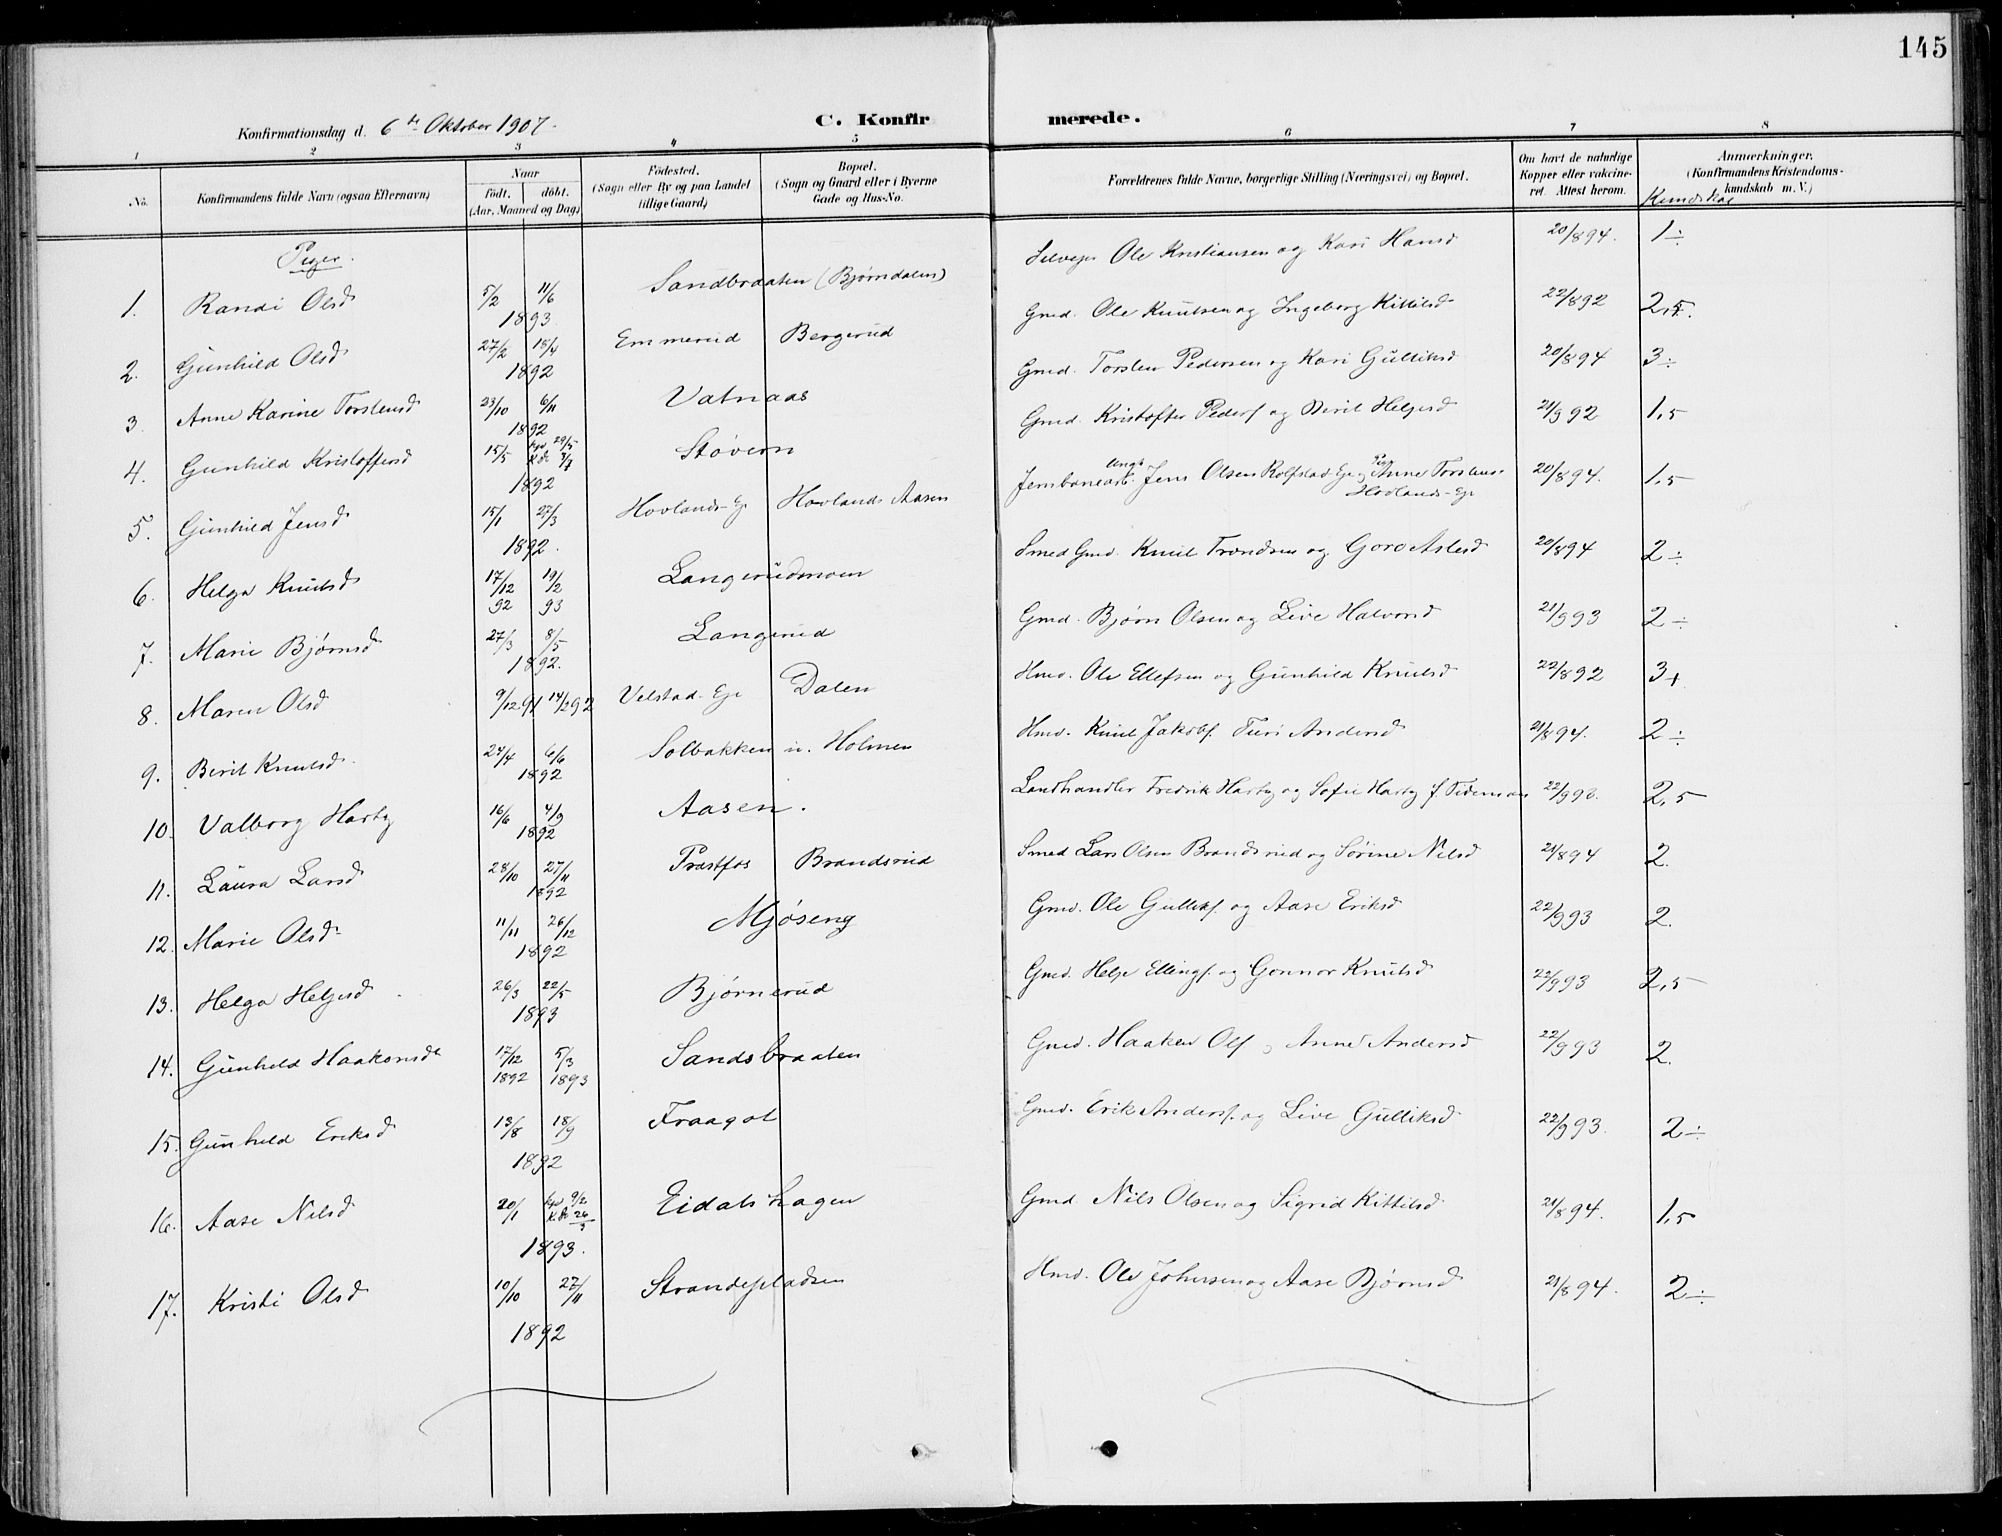 145
Konfirmationsdag d. 6te Oktober 1907.
C. Konfirmerede.
1 2 3 4 5 6 7 8
No.
Konfirmandens fulde Navn (ogsaa Efternavn)
Naar
födt. döbt.
(Aar, Maaned og Dag)
Födested.
(Sogn eller By og paa Landet
tillige Gaard)
Bopæl.
(Sogn og Gaard eller i Byerne
Gade og Hus-No.
Forældrenes fulde Navne, borgerlige Stilling (Næringsvei) og Bopæl.
Om havt de naturlige
Kopper eller vakcine-
ret. Attest herom.
Anmærkninger.
(Konfirmandens Kristendoms-
kundskab m. V.)
Kundskab
Piger.
1. Randi Olsd 5/2 11/6 1893 Sandbraaten (Bjørndalen) Selvejer Ole Kristiansen og Kari Hansd 20/8 94. 1÷
2. Gunhild Olsd 27/2 18/4 1892 Emmerud Bergerud Gmd. Ole Knutsen og Ingeborg Kittilsd 22/8 92 2,5.
3. Anne Karine Torstensd 23/10 6/11 1892 Vatnaas Gmd. Torsten Pedersen og Kari Gulliksd 20/8 94 3÷
4. Gunhild Kristoffersd 15/5 hjd 29/5 K.dr 3/7 1892 Støvern Gmd. Kristoffer Peders. og Berit Helgesd 21/9 92 1,5
5. Gunhild Jensd 15/1 27/3 1892. Hovlands-Eje Hovlands Aasen Jernbanearb. Ungk. Jens Olsen Rolfstad-Eje og Pige Anne Torstensd Hovlands-Eje 20/8 94. 1,5
6. Helga Knutsd 17/12 92 19/2 93 Langerudmoen Smed Gmd. Knut Trondsen og Goro Aslesd 20/8 94 2÷
7. Marie Bjørnsd 27/3 8/5 1892. Langerud Gmd. Bjørn Olsen og Live Halvorsd 21/9 93 2÷
8. Maren Olsd 9/12 91 14/2 92 Velstad-Eje Dalen Hmd. Ole Ellefsen og Gunhild Knutsd 22/8 92 3+
9. Berit Knutsd 24/4 6/6 1892 Solbakken u. Holmen Hmd. Knut Jakobs. Turi Andersd 21/8 94. 2÷
10. Valborg Harby 16/6 4/9 1892 Aasen. Landhandler Fredrik Harby og Sofie Harby f. Tideman 22/9 93. 2,5
11. Laura Larsd 28/10 27/11 1892 Prestfos Brandsrud Smed Lars Olsen Brandsrud og Sørine Nilsd 21/8 94 2.
12. Marie Olsd 11/11 26/12 1892 Mjøseng Gmd. Ole Gulliks. og Aase Eriksd 22/9 93 2.
13. Helga Helgesd 26/3 22/5 1893 Bjørnerud Gmd. Helge Ellings. og Gonnor Knutsd 22/9 93 2,5
14. Gunhild Haakonsd 17/12 1892 5/3 1893 Sandsbraaten Gmd. Haaken Ols og Anne Andersd 22/9 93 2.
15. Gunhild Eriksd 13/8 18/9 1892 Fraagot Gmd. Erik Anders. og Live Gulliksd 22/9 93. 2÷
16. Aase Nilsd 20/1 hjd 9/2 K.dr 26/3 1893. Eidalshagen Gmd Nils Olsen og Sigrid Kittilsd 21/8 94. 1,5
17. Kristi Olsd 10/10 27/11 1892 Strandepladsen Hmd. Ole Johnsen og Aase Bjørnsd 21/8 94. 2÷